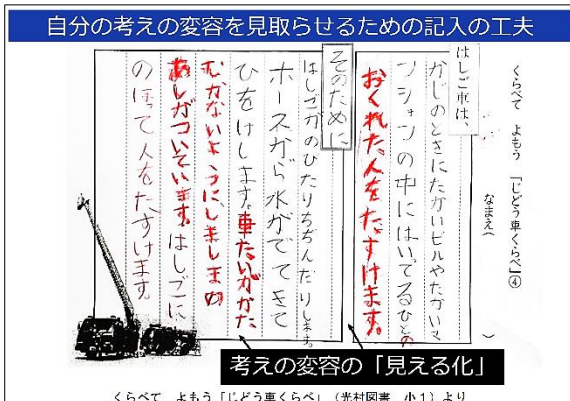 自分の考えの変容を見取らせるための記入の工夫
くらべて よもう 「じどう車くらべ」④
なまえ（ ）
はしご車は、
かじのときにたかいビルやたかいマ
ンションの中にはいてるひとの
おくれた人をたすけます。
そのために
はしごがのびたりちぢんだりします。
ホースから水がでてきて
ひをけします。車たいががた
むかないようにしましまの
あしがついています。はしごに
のぼて人をたすけます
考えの変容の「見える化」
くらべて よもう「じどう車くらべ」（光村図書 小1）より